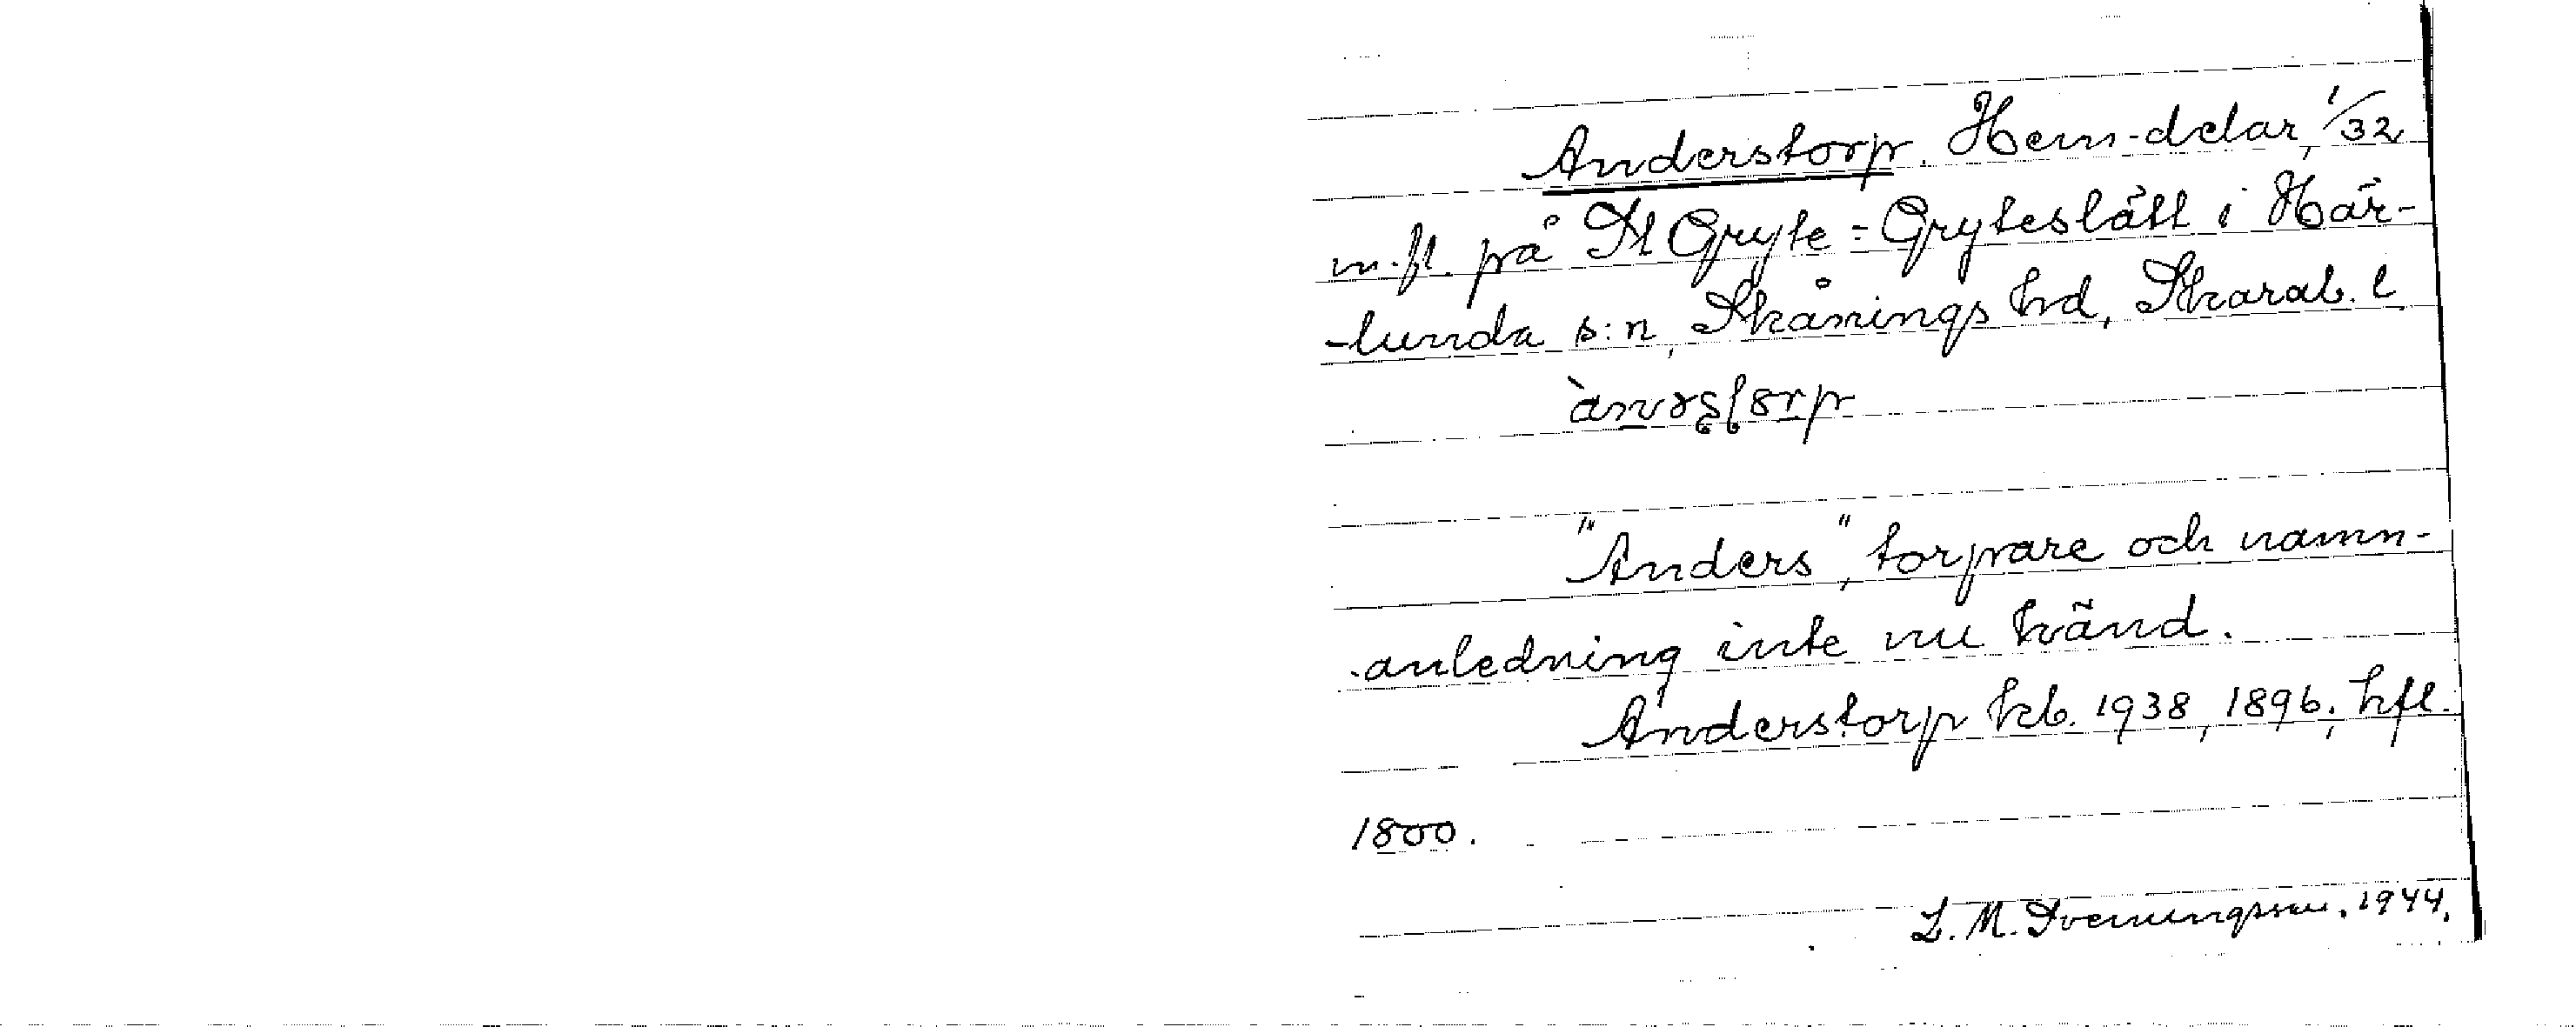 Anderstorp. Hem-delar, 1/32
m.fl. på St Gryte = Gryteslätt i Här-
-lunda s:n, Skånings hd, Skarab. l
"Anders", torpare och namn-
-anledning inte nu känd.
Anderstorp kb. 1938, 1896; hfl.
1800.
L. M. Svenungsson. 1944.